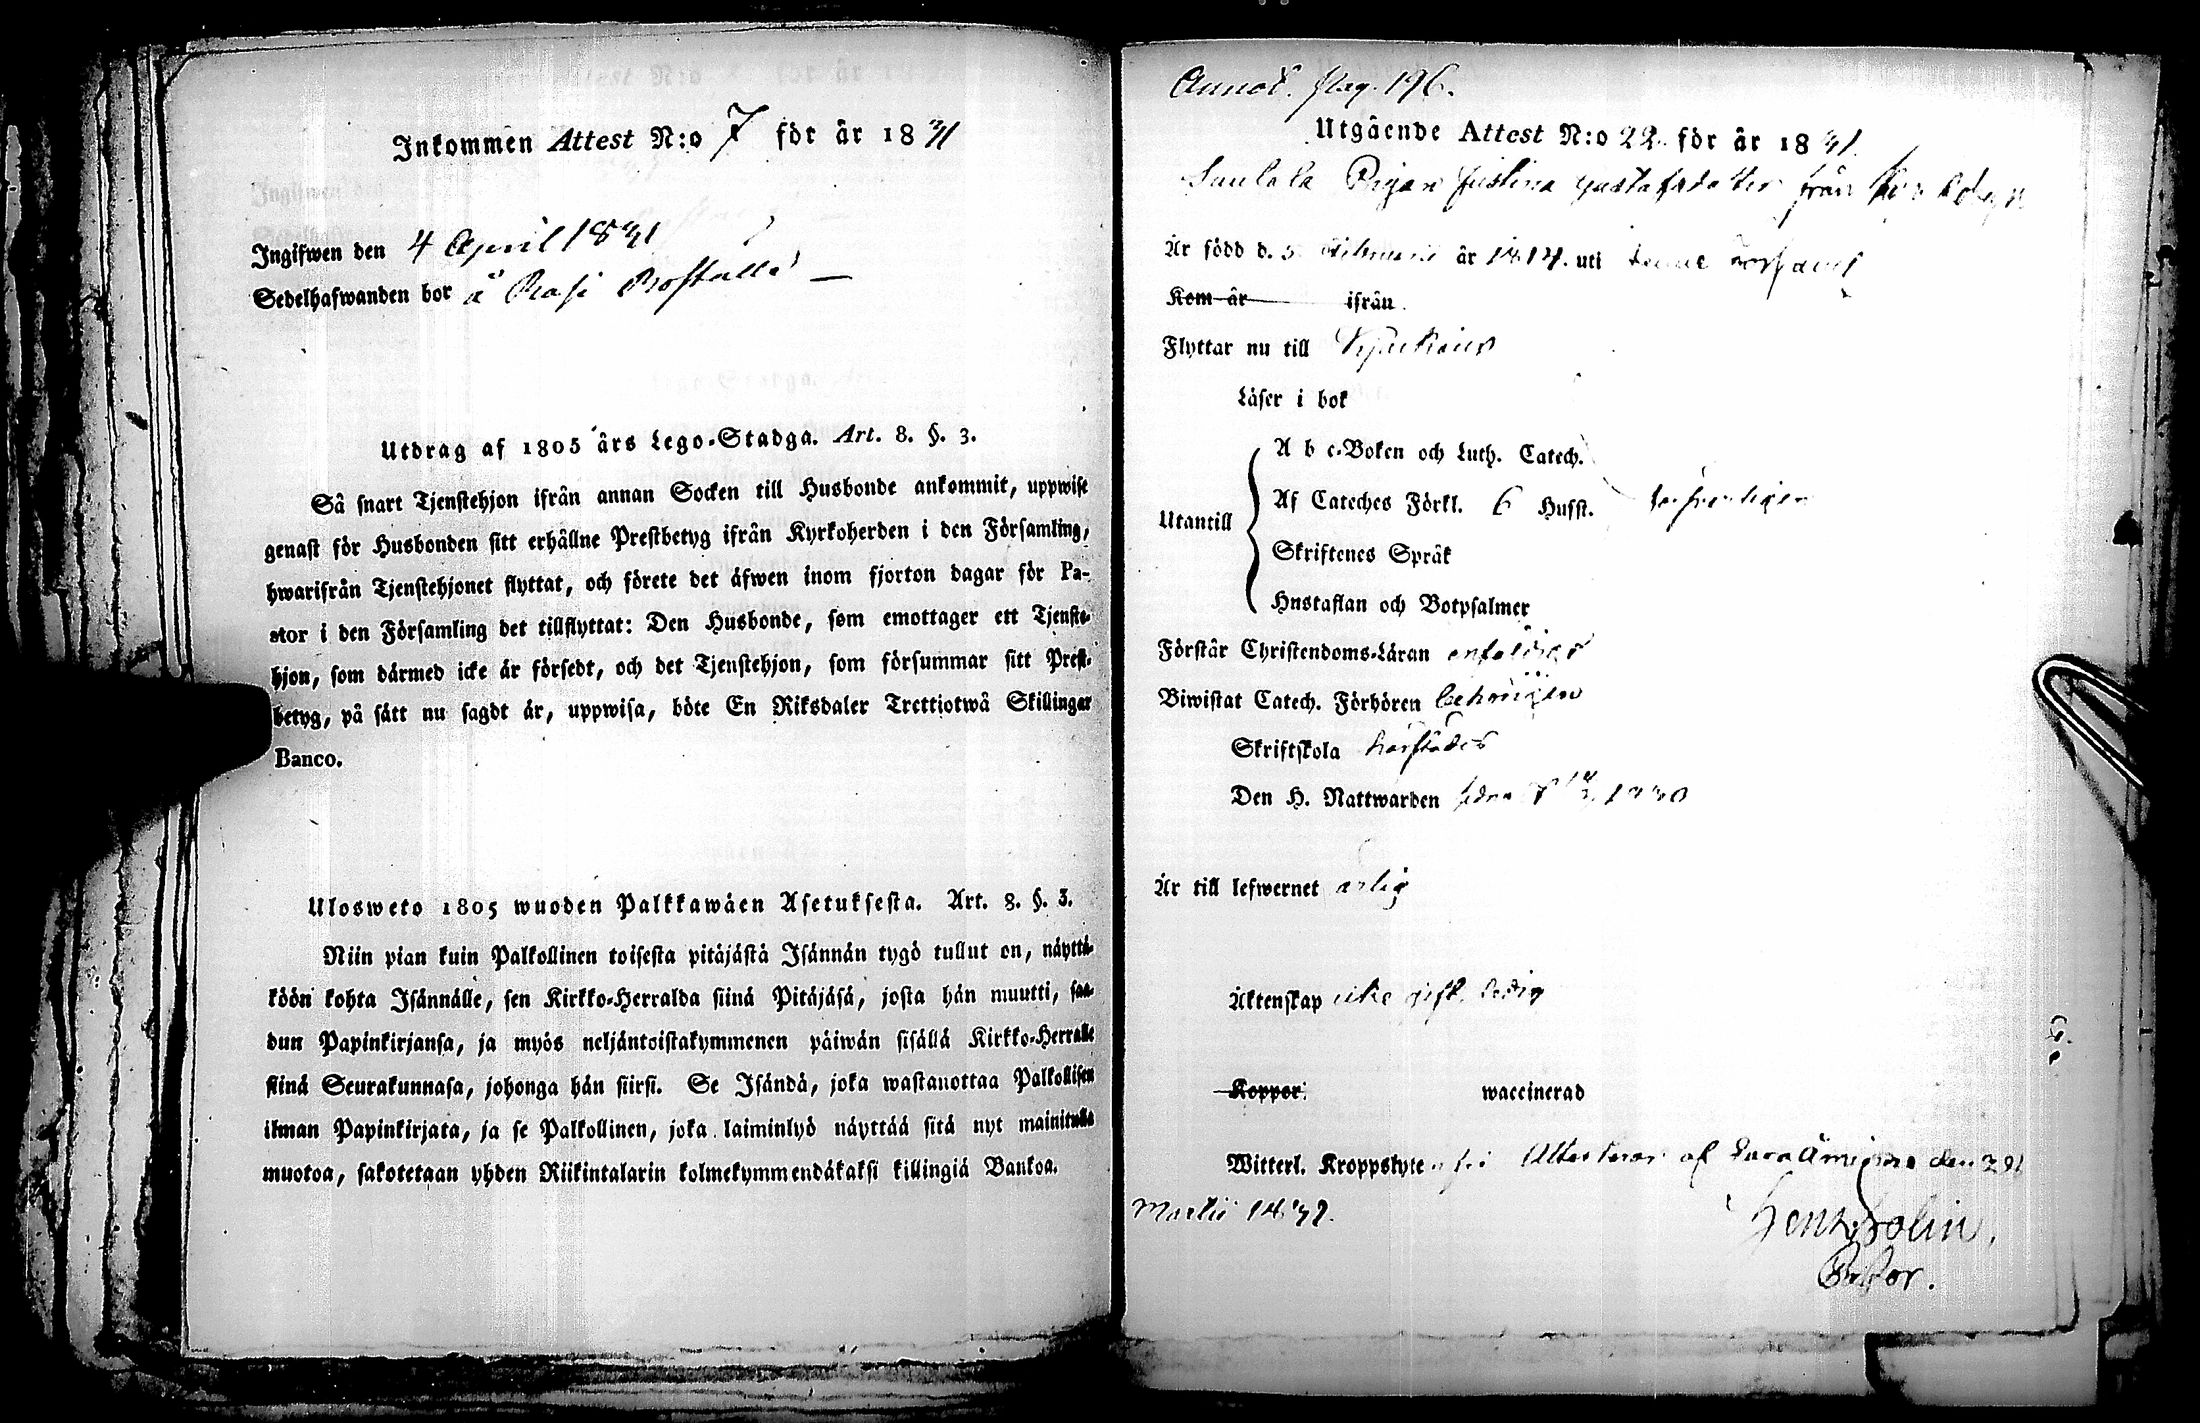 Inkommen Attest N:o 7 för år 1831
Ingifwen den 4 April 1831
Sedelhafwanden bor å Rasi Boställe
Utdrag af 1805 års Lego-Stadga. Art. 8. §. 3.
Så snart Tjenstehjon ifrån annan Socken till Husbonde ankommit, uppwise
genast för Husbonden sitt erhållne Prestbetyg ifrån Kyrkoherden i den Församling,
hwarifrån Tjenstehjonet flyttat, och förete det äfwen inom fjorton dagar för Pa-
stor i den Församling det tillflyttat: Den Husbonde, som emottager ett Tjenste-
hjon, som därmed icke är försedt, och det Tjenstehjon, som försummar sitt Prest-
betyg, på sätt nu sagdt är, uppwisa, böte En Riksdaler Trettiotwå Skillingar
Banco.
Ulosweto 1805 wuoden Palkkawäen Asetuksesta. Art. 8. §. 3.
Niin pian kuin Palkollinen toisesta pitäjästä Isännän tygö tullut on, näyttä-
köön kohta Isännälle, sen Kirkko-Herralda siinä Pitäjäsä, josta hän muutti, saa-
dun Papinkirjansa, ja myös neljäntoistakymmenen päiwän sisällä Kirkko-Herralle
siinä Seurakunnasa, johonga hän siirsi. Se Isändä, joka wastanottaa Palkollisen
ilman Papinkirjata, ja se Palkollinen, joka laiminlyö näyttää sitä nyt mainitulla
muotoa, sakotetaan yhden Riikintalarin kolmekymmendäkaksi killingiä Bankoa.
Annot. pag. 196.
Utgående Attest N:o 22 för år 1831.
Pigan Justina Gustafsdotter från
Är född d. 5 Februarii år 1814. uti denne
Kom år ifrån
Flyttar nu till
Läser i bok
A b c-Boken och Luth. Catech.
Utantill
Af Cateches Förkl. 6 Hufst. försvarligen
Skriftenes Språk
Hustaflan och Botpsalmer
Förstår Christendoms-Läran enfaldigt
Biwistat Catech. Förhören behörigen
Skriftskola härstädes
Den H. Nattwarden 1830
Är till lefwernet ärlig
Äktenskap icke gift. ledig
Koppor waccinerad
Witterl. Kroppslyte fri Attesterar af den 29
Martii 1831.